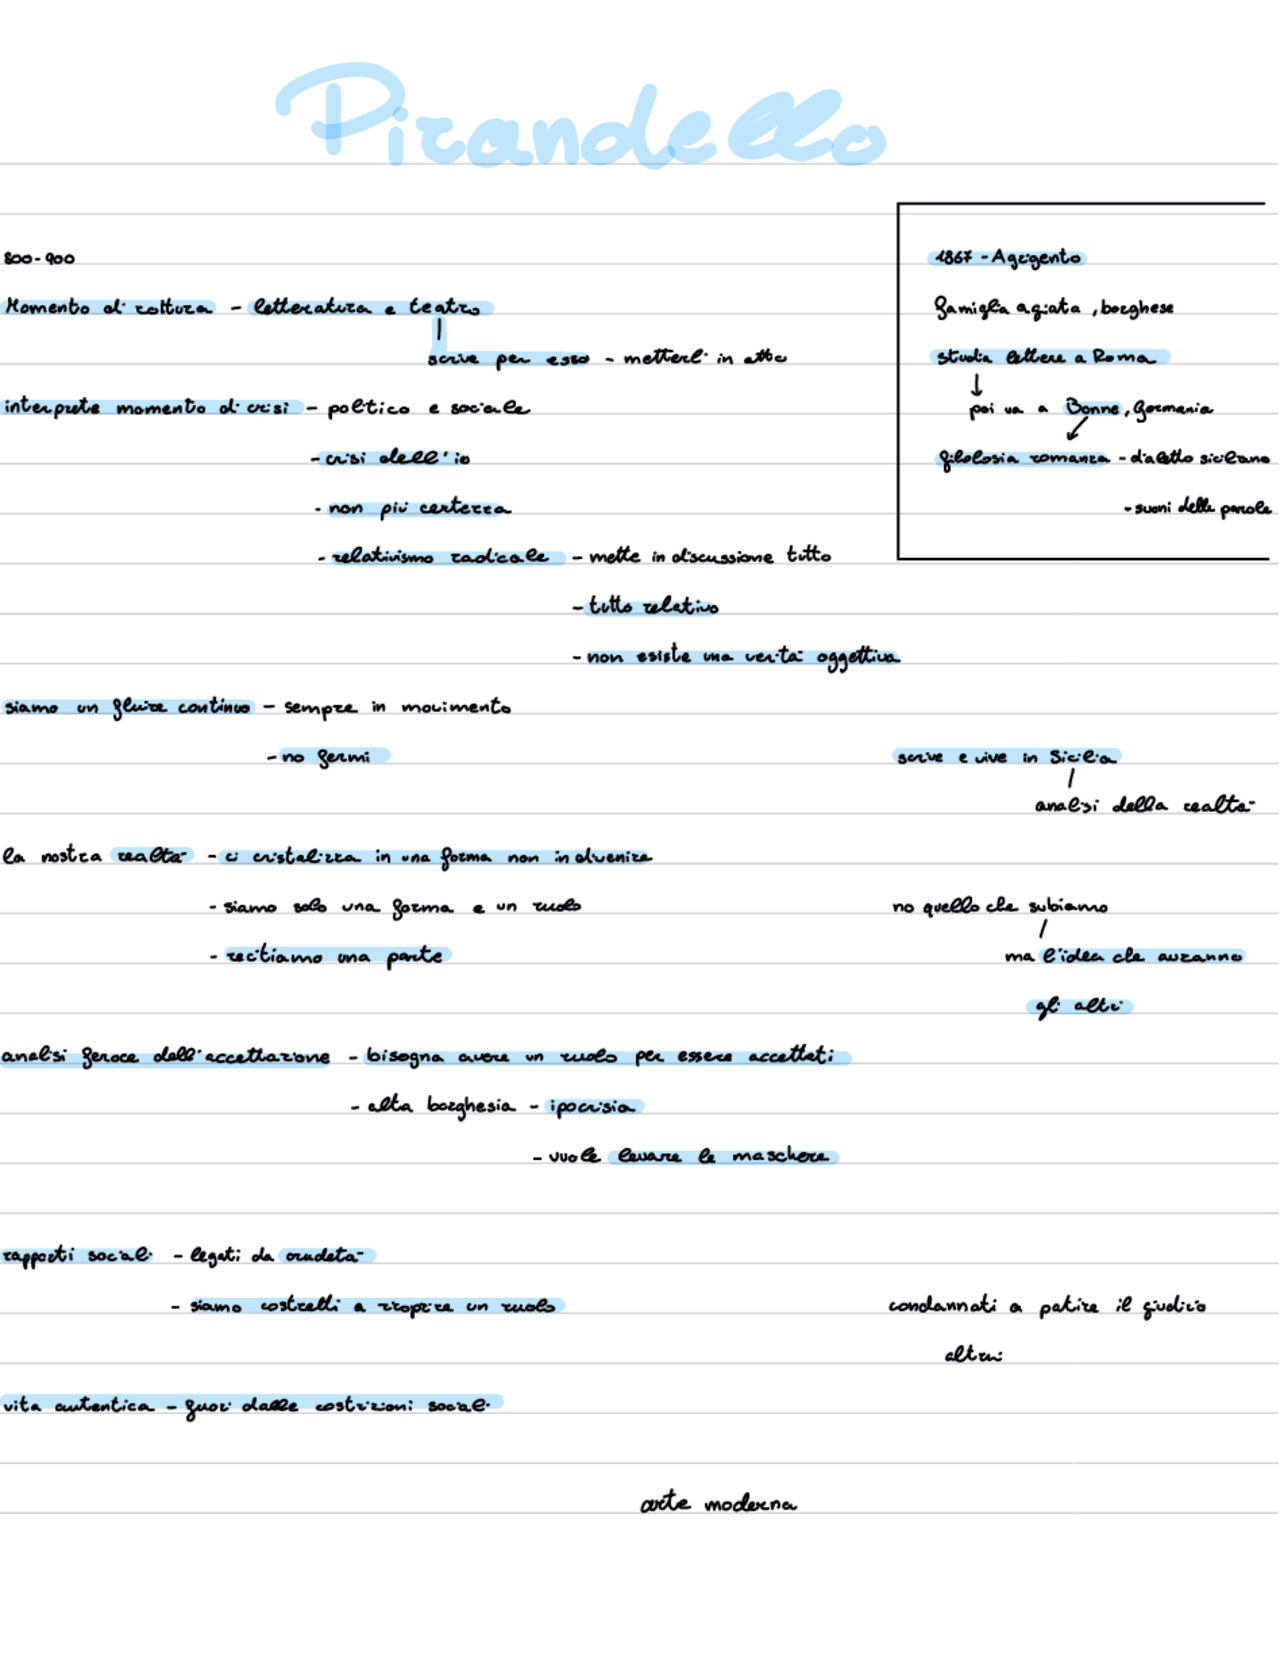 Pirandello
800-900
Momento di rottura - letteratura e teatro
scrive per esso - metterli in atto
interprete momento di crisi - politico e sociale
- crisi dell'io
- non più certezza
- relativismo radicale - mette in discussione tutto
- tutto relativo
- non esiste una verità oggettiva
1867 - Agrigento
famiglia agiata, borghese
studia lettere a Roma
poi va a Bonne, Germania
filolosia romanza - dialetto siciliano
- suoni delle parole
siamo un fluire continuo - sempre in movimento
- no fermi
scrive e vive in Sicilia
analisi della realtà
la nostra realtà - ci cristalizza in una forma non in divenire
- siamo solo una forma e un ruolo
- recitiamo una parte
no quello che subiamo
ma l'idea che avranno
gli altri
analisi feroce dell'accettazione - bisogna avere un ruolo per essere accettati
- alta borghesia - ipocrisia
- vuole levare le maschere
rapporti sociali - legati da crudeltà
- siamo costretti a ricoprire un ruolo
condannati a patire il giudizio
altrui
vita autentica - fuori dalle costrizioni sociali
arte moderna